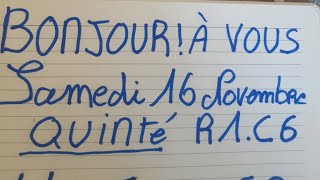 BONJOUR! À VOUS
Samedi 16 Novembre
QUINTÉ R1.C6